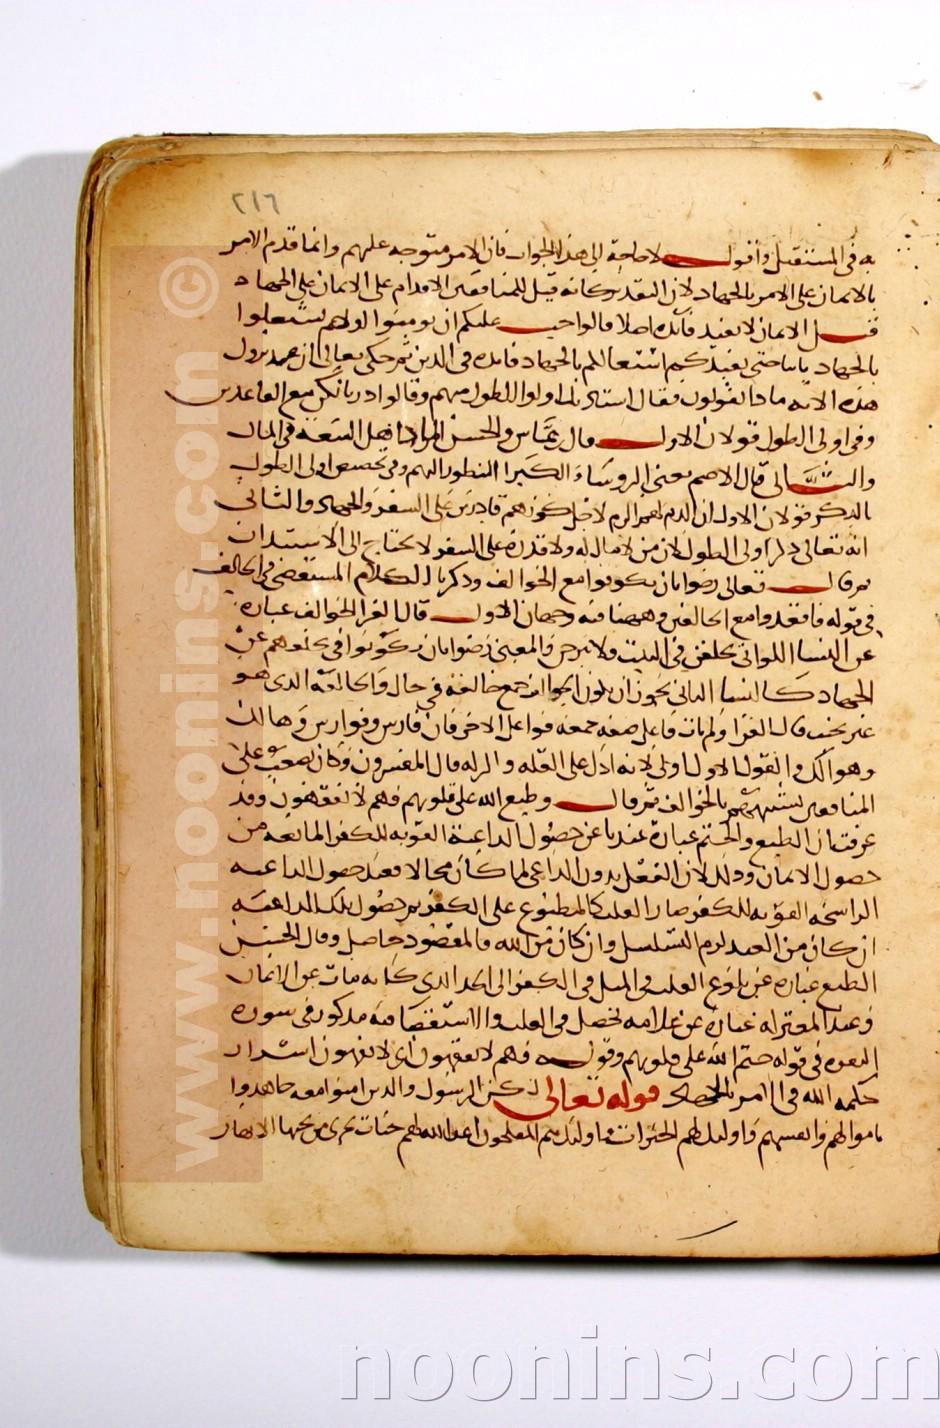 ٢١٦
به في المستقبل وأقول لا حاجة إلى هذا الجواب فان الامر متوجه عليهم وانما قدم الامر
بالايمان على الامر بالجهاد لان التقدير كانه قيل للمنافقين الاقدام على الايمان على الجهاد
قبل الايمان لا يفيد فائدة اصلا فالواجب عليكم ان تؤمنوا اولا ثم تشتغلوا
بالجهاد ثانيا حتى يفيدكم اشتغالكم بالجهاد فائدة في الدين ثم حكى تعالى ان عند نزول
هذه الاية ماذا يقولون فقال استاذنك اولوا الطول منهم وقالوا ذرنا نكن مع القاعدين
وفي اولى الطول قولان الاول قال ابن عباس والحسن المراد اهل السعة في المال
والثاني قال الاصم يعنى الرؤساء الكبراء المنظور اليهم وفي تخصيص اولى الطول
بالذكر قولان الاول ان الذم لهم الزم لاجل كونهم قادرين على السفر والجهاد والثاني
انه تعالى ذكر اولى الطول لان من لا مال له ولا قدرة على السفر لا يحتاج الى الاستيذان
ثم قال تعالى رضوا بان يكونوا مع الخوالف وذكرنا الكلام المستقصى في الخالف
في قوله فاقعدوا مع الخالفين وههنا فيه وجهان الاول قال الفرا الخوالف عبارة
عن النساء اللواتى تخلفن في البيت ولا يبرحن والمعنى رضوا بان يكونوا في تخلفهم عن
الجهاد كالنساء الثاني يجوز ان يكون الخوالف جمع خالفة في حال والخالفة الذى هو
غير نجيب قال الفرا ولم يات فاعل صفة جمعه فواعل الا حرفان فارس وفوارس وهالك
وهوالك والقول الاول اولى لانه ادل على القلة والذلة قال المفسرون وكان يصعب على
المنافقين تشبيههم بالخوالف ثم قال وطبع الله على قلوبهم فهم لا يفقهون وقد
عرفت ان الطبع والختم عبارة عندنا عن حصول الداعية القوية للكفر المانعة من
حصول الايمان وذلك لان الفعل بدون الداعى لما كان محالا فعند حصول الداعية
الراسخة القوية للكفر صار القلب كالمطبوع على الكفر ثم حصول تلك الداعية
ان كان من العبد لزم التسلسل وان كان من الله فالمقصود حاصل وقال الحسن
الطبع عبارة عن بلوغ القلب في الميل في الكفر الى الحد الذى كانه مات عن الايمان
وعند المعتزلة عبارة عن علامة تحصل في القلب والاستقصا فيه مذكور في سورة
البقرة في قوله ختم الله على قلوبهم وقوله فهم لا يفقهون اى لا يفهمون اسرار
حكمة الله في الامر بالجهاد قوله تعالى لكن الرسول والذين امنوا معه جاهدوا
باموالهم وانفسهم واوليك لهم الخيرات واوليك هم المفلحون اعد الله لهم جنات تجرى من تحتها الانهار
www.noonins.com ©
noonins.com